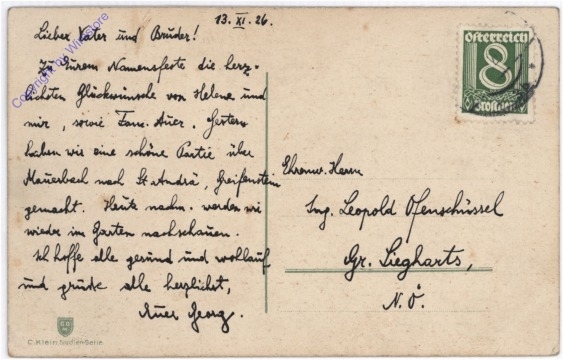 13. XI. 26.
Lieber Vater und Bruder!
Zu Eurem Namensfeste die herz-
lichsten Glückwünsche von Helene und
mir, sowie Fam. Auer. Gestern
haben wir eine schöne Partie über
Mauerbach nach St. Andrä, Greifenstein
gemacht. Heute nachm. werden wir
wieder im Garten nachschauen.
Ich hoffe alle gesund und wohlauf
und grüße alle herzlichst,
Euer Georg.
C. Klein, Studien-Serie.
Österreich
8
Groschen
Ehrenw. Herrn
Ing. Leopold Ofenschüssel
Gr. Siegharts,
N. Ö.